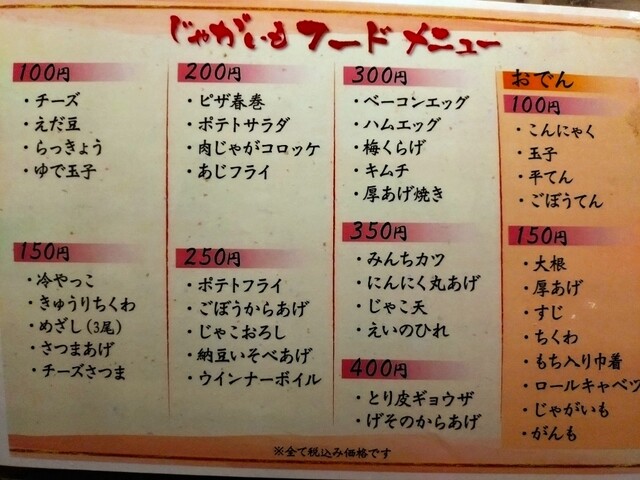 じゃがいも フード メニュー
100円
・チーズ
・えだ豆
・らっきょう
・ゆで玉子
150円
・冷やっこ
・きゅうりちくわ
・めざし(3尾)
・さつまあげ
・チーズさつま
200円
・ピザ春巻
・ポテトサラダ
・肉じゃがコロッケ
・あじフライ
250円
・ポテトフライ
・ごぼうからあげ
・じゃこおろし
・納豆いそべあげ
・ウインナーボイル
300円
・ベーコンエッグ
・ハムエッグ
・梅くらげ
・キムチ
・厚あげ焼き
350円
・みんちカツ
・にんにく丸あげ
・じゃこ天
・えいのひれ
400円
・とり皮ギョウザ
・げそのからあげ
おでん
100円
・こんにゃく
・玉子
・平てん
・ごぼうてん
150円
・大根
・厚あげ
・すじ
・ちくわ
・もち入り巾着
・ロールキャベツ
・じゃがいも
・がんも
※全て税込み価格です